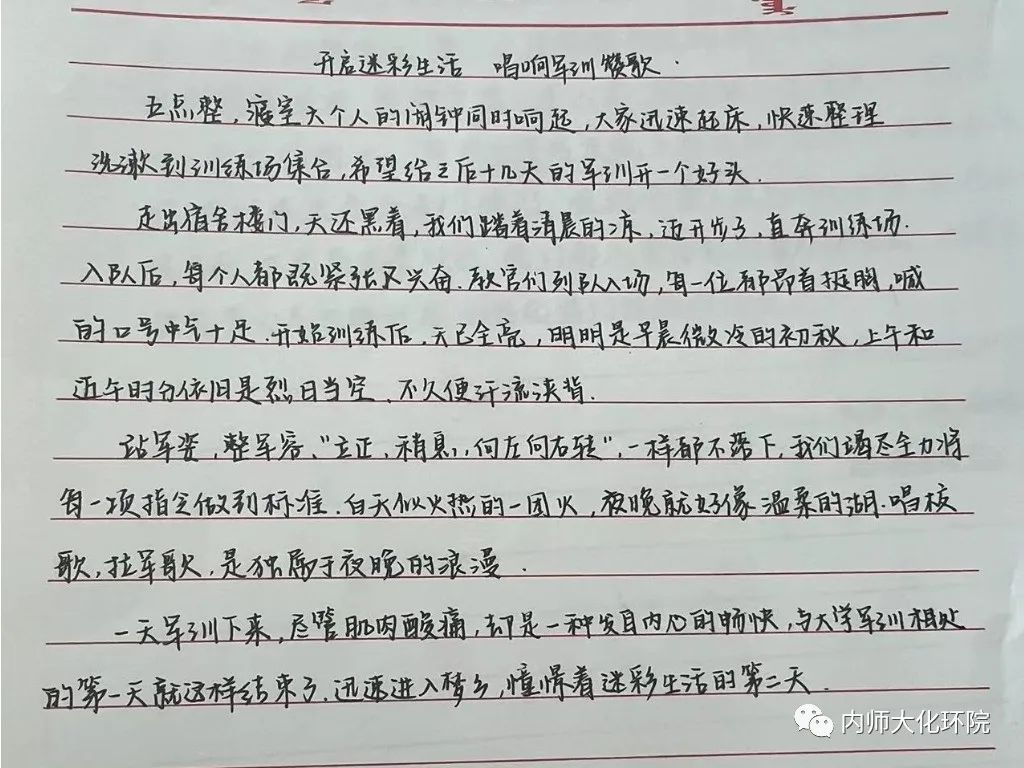 开启迷彩生活 唱响军训赞歌.
五点整,寝室六个人的闹钟同时响起,大家迅速起床,快速整理
洗漱到训练场集合,希望给之后十几天的军训开一个好头.
走出宿舍楼门,天还黑着,我们踏着清晨的凉,迈开步子,直奔训练场.
入队后,每个人都既紧张又兴奋.教官们列队入场,每一位都昂首挺胸,喊
的口号中气十足.开始训练后,天已全亮,明明是早晨微冷的初秋,上午和
近午时分依旧是烈日当空,不久便汗流浃背.
站军姿,整军容、"立正,稍息,向左向右转",一样都不落下,我们竭尽全力将
每一项指令做到标准.白天似火热的一团火,夜晚就好像温柔的湖.唱校
歌,拉军歌,是独属于夜晚的浪漫.
一天军训下来,尽管肌肉酸痛,却是一种发自内心的畅快,与大学军训相处
的第一天就这样结束了.迅速进入梦乡,憧憬着迷彩生活的第二天.
内师大化环院